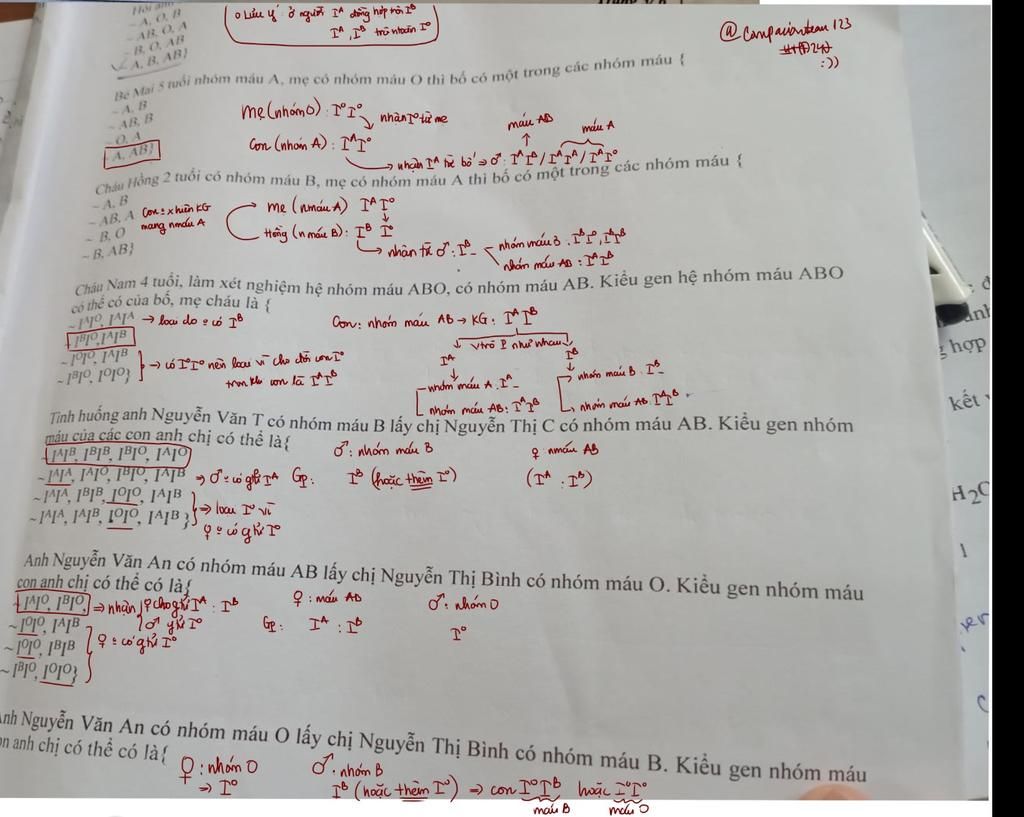 ~ A, O, B
~ AB, O, A
~ B, O, AB
~ A, B, AB}
o Lưu ý: ở người I^A đồng hợp trội I^B
I^A, I^B trội hoàn toàn I^O
@companionteam123
:))
Bé Mai 5 tuổi nhóm máu A, mẹ có nhóm máu O thì bố có một trong các nhóm máu {
~ A, B
~ AB, B
~ O, A
~ A, AB}
Mẹ (nhóm O) : I^O I^O
nhận I^O từ mẹ
Con (nhóm A) : I^A I^O
máu AB
máu A
→ nhận I^A từ bố ⇒ ♂ : I^A I^B / I^A I^A / I^A I^O
Cháu Hồng 2 tuổi có nhóm máu B, mẹ có nhóm máu A thì bố có một trong các nhóm máu {
~ A, B
~ AB, A
~ B, O
~ B, AB}
mang nmáu A
mẹ (nmáu A) I^A I^O
Hồng (n máu B) : I^B I^O
→ nhận từ ♂ : I^B_
nhóm máu B : I^B I^O, I^B I^B
nhóm máu AB : I^A I^B
Cháu Nam 4 tuổi, làm xét nghiệm hệ nhóm máu ABO, có nhóm máu AB. Kiểu gen hệ nhóm máu ABO
có thể có của bố, mẹ cháu là {
~ I^A I^O, I^A I^A → loại do : có I^B
I^B I^O, I^A I^B
~ I^O I^O, I^A I^B
~ I^B I^O, I^O I^O}
→ có I^O I^O nên loại vì cho đời con I^O
trong khi con là I^A I^B
Con : nhóm máu AB → KG : I^A I^B
vtrò P như nhau
I^A I^B
nhóm máu A : I^A_
nhóm máu AB : I^A I^B
nhóm máu B : I^B_
nhóm máu AB : I^A I^B
Tình huống anh Nguyễn Văn T có nhóm máu B lấy chị Nguyễn Thị C có nhóm máu AB. Kiểu gen nhóm
máu của các con anh chị có thể là{
+ I^A I^B, I^B I^B, I^B I^O, I^A I^O
~ I^A I^A, I^A I^O, I^B I^O, I^A I^B
~ I^A I^A, I^B I^B, I^O I^O, I^A I^B
~ I^A I^A, I^A I^B, I^O I^O, I^A I^B }
→ loại I^O vì
♂ : nhóm máu B ♀ nmáu AB
Gp : I^B (hoặc thêm I^O) (I^A : I^B)
Anh Nguyễn Văn An có nhóm máu AB lấy chị Nguyễn Thị Bình có nhóm máu O. Kiểu gen nhóm máu
con anh chị có thể có là{
+ I^A I^O, I^B I^O,
~ I^O I^O, I^A I^B
~ I^O I^O, I^B I^B
~ I^B I^O, I^O I^O}
⇒ nhận ♀ cho gtử I^A : I^B
♀ : máu AB ♂ : nhóm O
Gp : I^A : I^B I^O
Anh Nguyễn Văn An có nhóm máu O lấy chị Nguyễn Thị Bình có nhóm máu B. Kiểu gen nhóm máu
con anh chị có thể có là{
♀ : nhóm O ♂ : nhóm B
⇒ I^O I^B (hoặc thêm I^O) ⇒ con I^O I^B hoặc I^O I^O
máu B máu O
hợp
kết
H2O
1